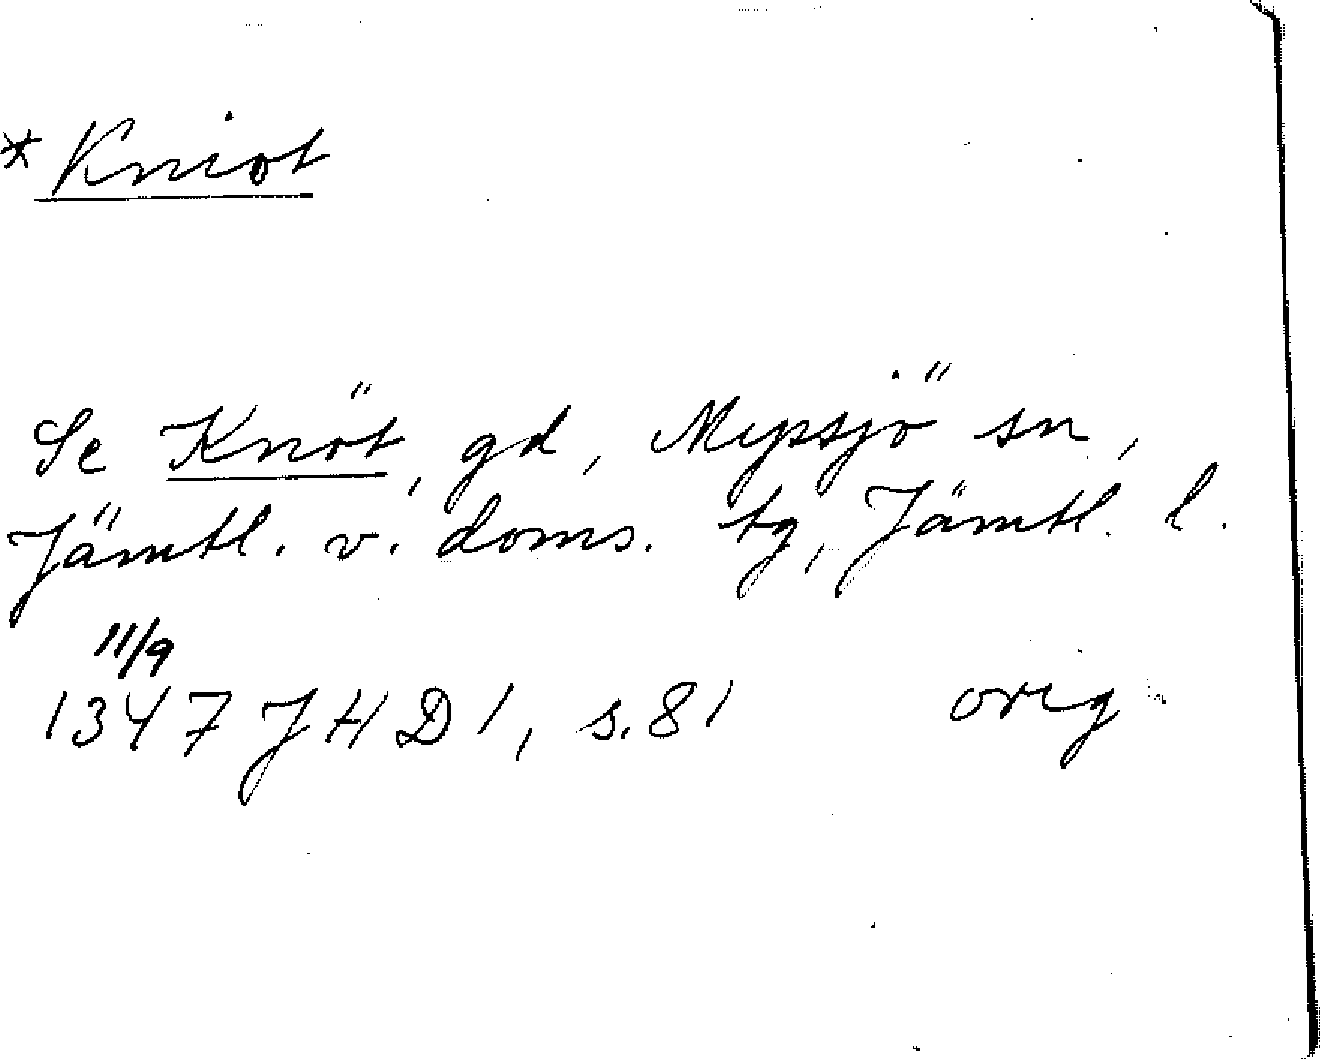 * Kniot
Se Knöt, gd, Mypsjö sn,
Jämtl. v. doms. tg, Jämtl. l.
11/9
1347 JHD 1, s. 81 orig